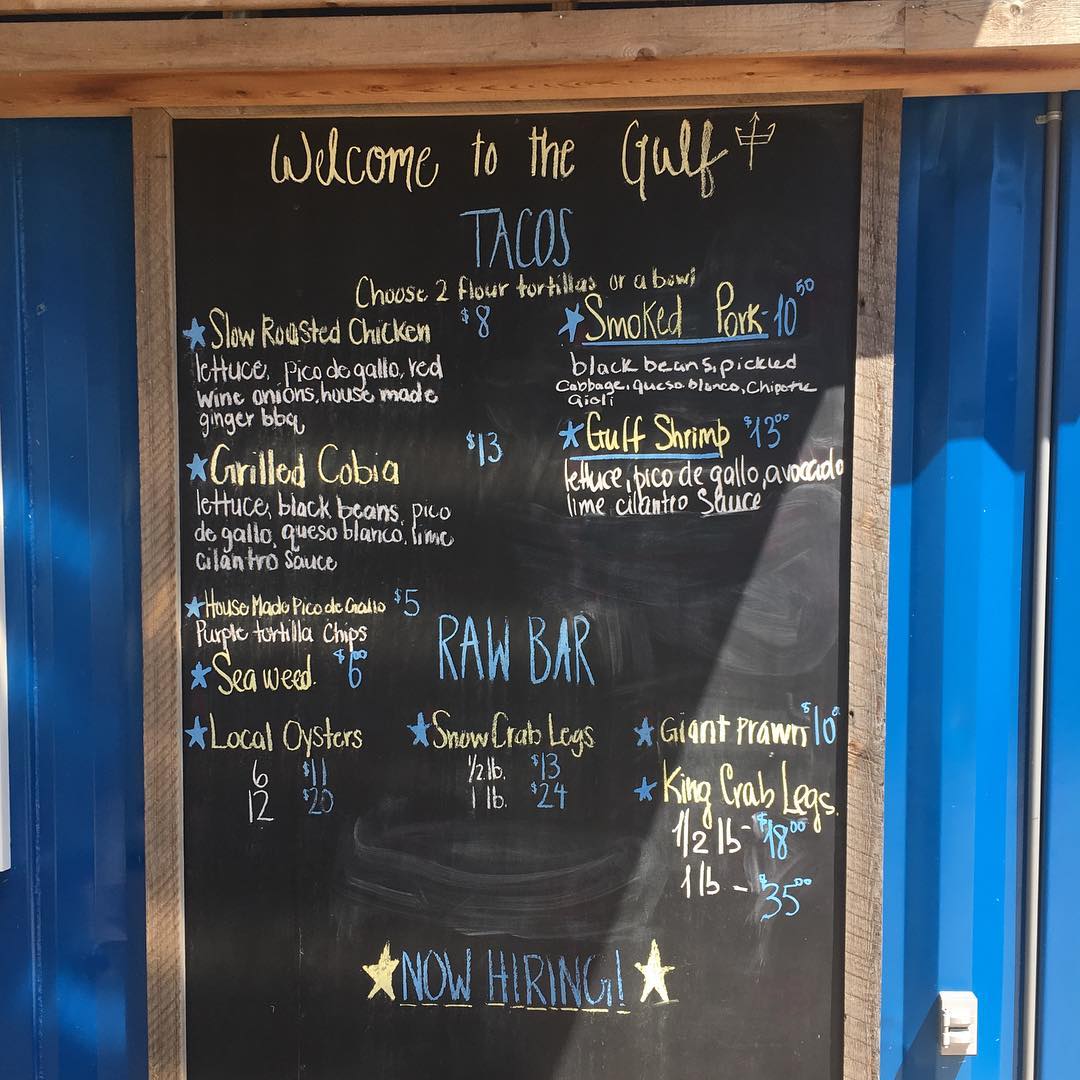 Welcome to the Gulf
TACOS
Choose 2 flour tortillas or a bowl
Slow Roasted Chicken $8
lettuce, pico de gallo, red
wine onions, house made
ginger bbq
Grilled Cobia $13
lettuce, black beans, pico
de gallo, queso blanco, lime
cilantro Sauce
Smoked Pork-10 50
black beans, pickled
Cabbage, queso blanco, Chipotle
aioli
Gulf Shrimp $13 00
lettuce, pico de gallo, avocado
lime cilantro Sauce
House Made Pico de Gallo $5
Purple tortilla Chips
Sea weed. $6 00
RAW BAR
Local Oysters
6 $11
12 $20
Snow Crab Legs
1/2 lb. $13
1 lb. $24
Giant Prawn $10
King Crab Legs
1/2 lb - $18 00
1 lb - $35 00
NOW HIRING!